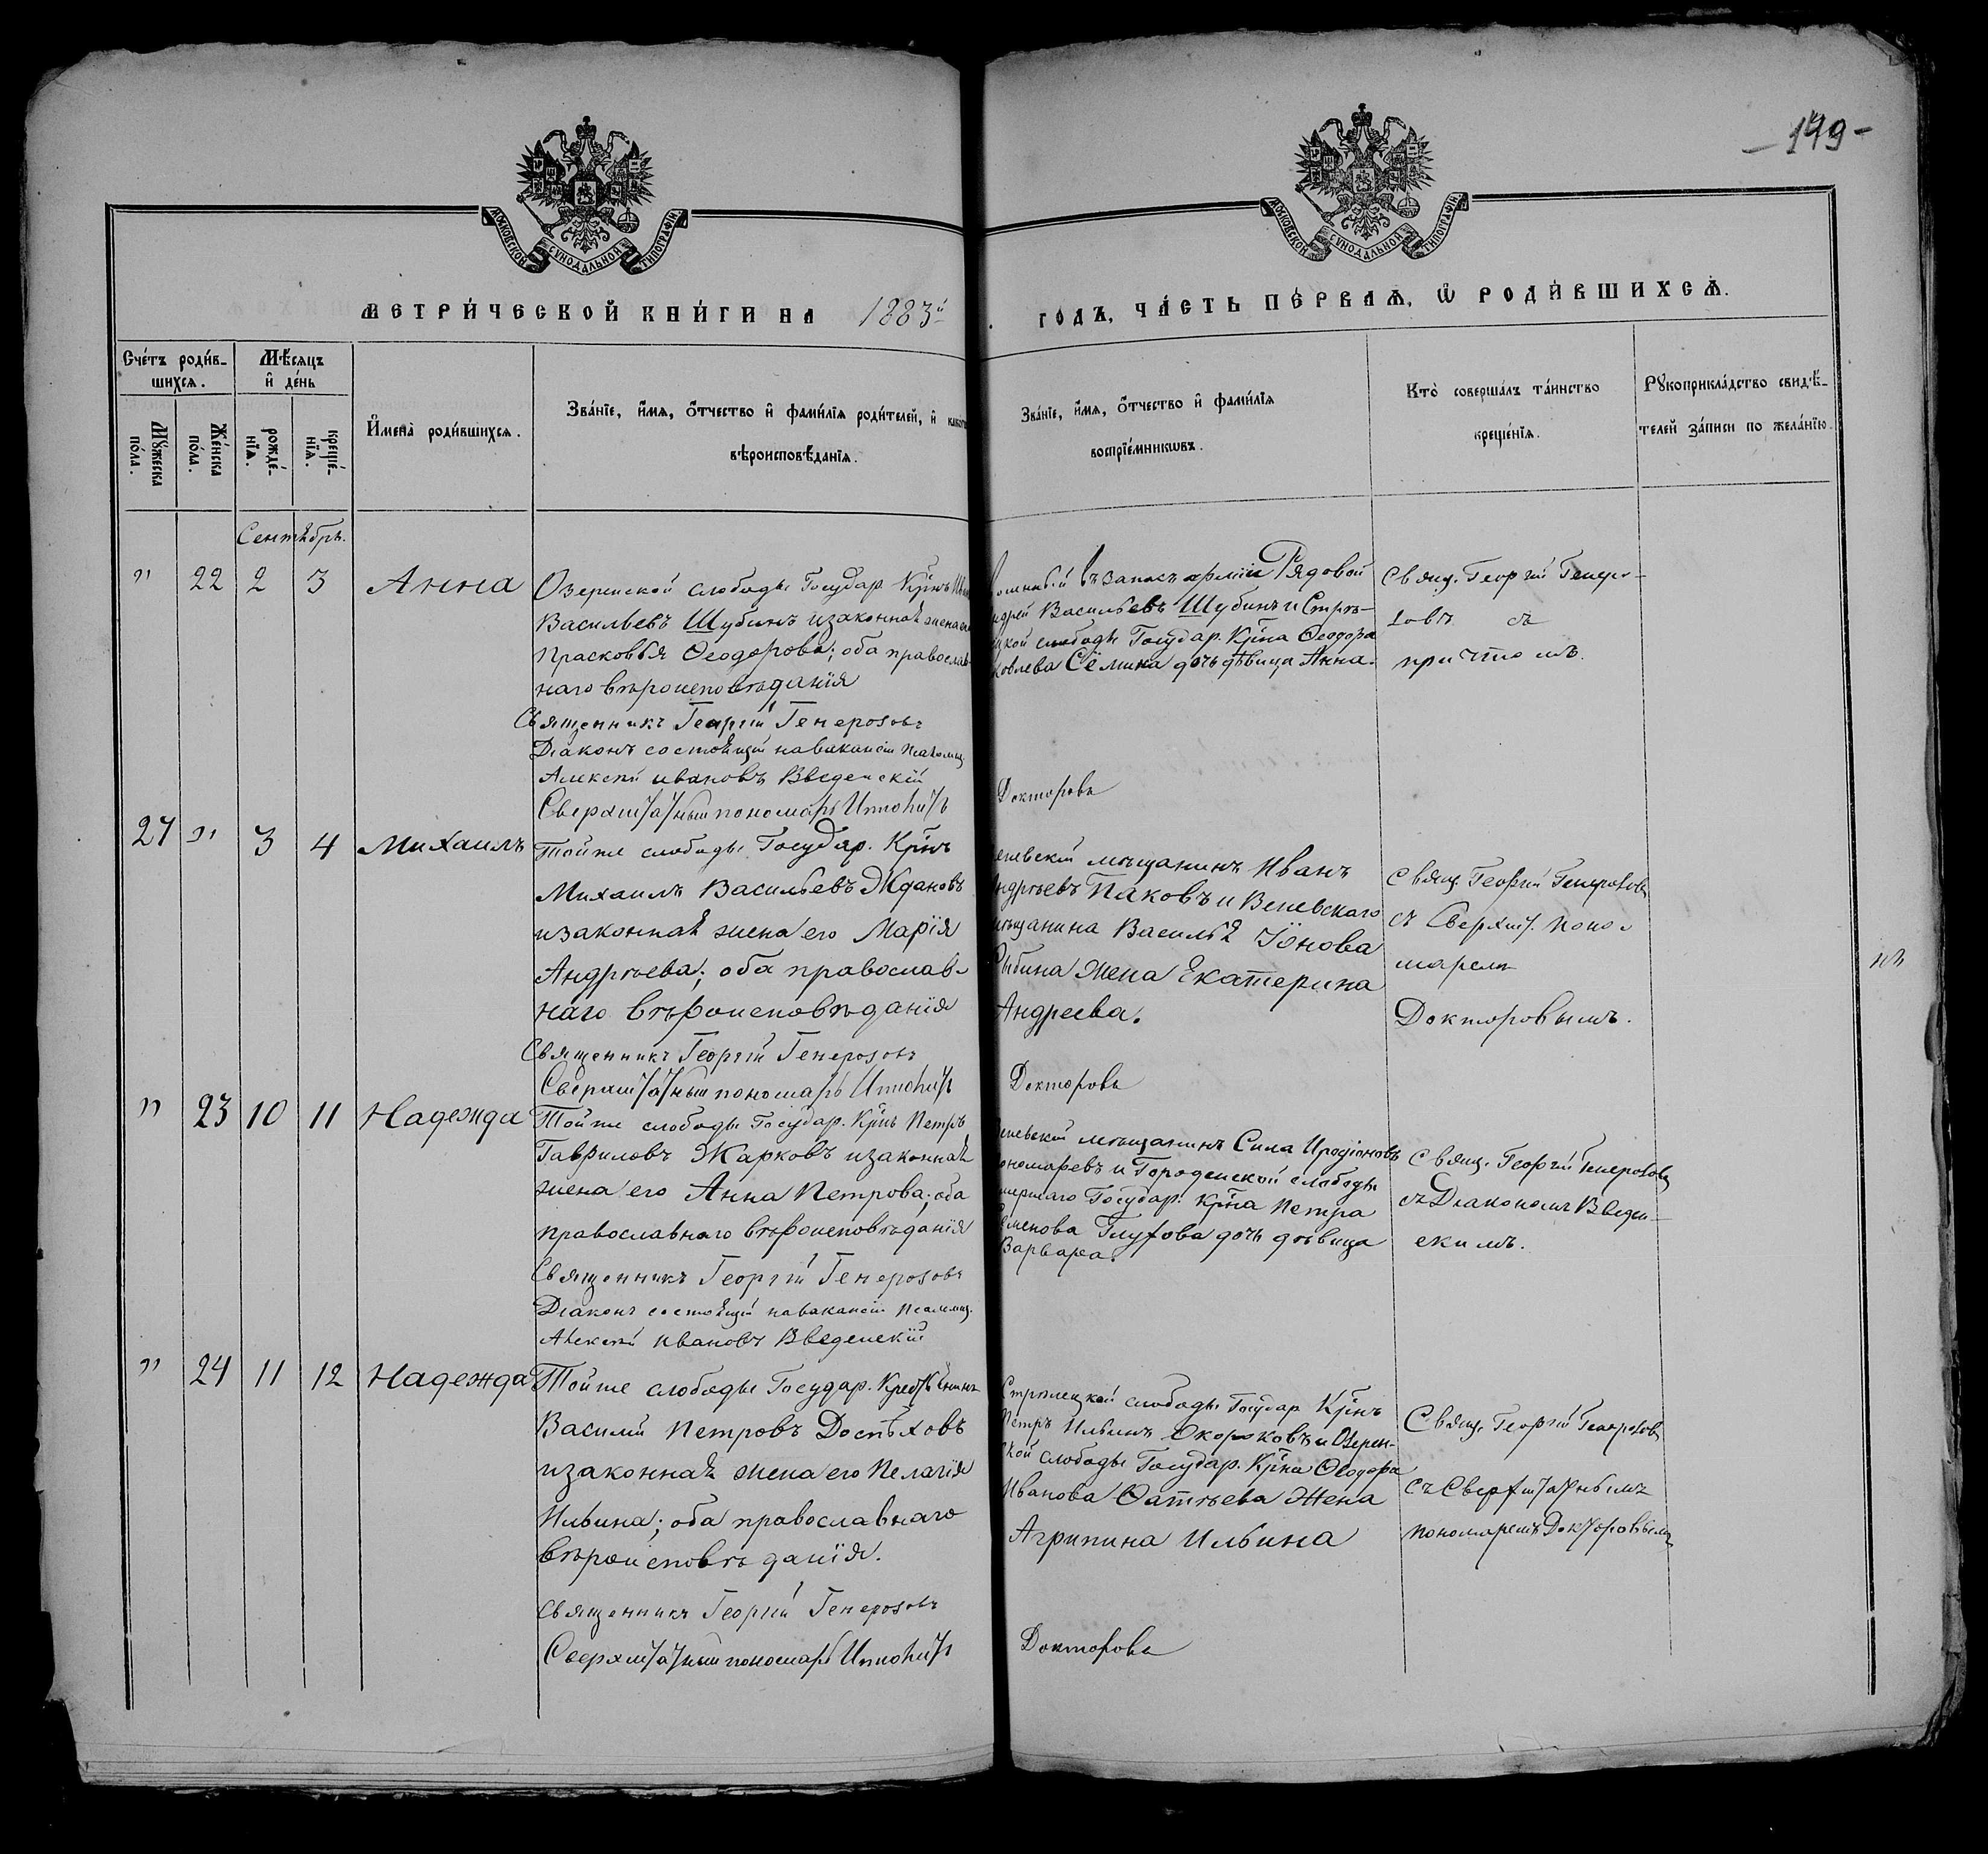 149
МОСКОВСКОЙ СѴНОДАЛЬНОЙ ТИПОГРАФІИ
МОСКОВСКОЙ СѴНОДАЛЬНОЙ ТИПОГРАФІИ
МЕТРИ́ЧЕСКОЙ КНИ́ГИ НА 1883й
ГОДЪ, ЧА́СТЬ ПЕ́РВАѦ, Ѽ РОДИ́ВШИХСѦ.
Сче́тъ роди́в-
шихсѧ.
Мѣ́сѧцъ
и де́нь
Мꙋ́жеска
по́ла.
Же́нска
по́ла.
рожде́-
нїѧ.
креще́-
нїѧ.
Имена̀ роди́вшихсѧ.
Зва́нїе, и́мѧ, о́тчество и фами́лїѧ роди́телей, и
вѣроисповѣ́данїѧ.
Зва́нїе, и́мѧ, о́тчество и фами́лїѧ
воспрїе́мникѡвъ.
Кто̀ соверша́лъ та́инство
креще́нїѧ.
Рꙋкоприкла́дство свидѣ́-
телей за́писи по жела́нїю.
Сентябрь.
" 22 2 3 Анна
Озеренской слободы Государ. Кр̃нъ
Васильевъ Шубинъ и законная жена
Прасковья Ѳеодорова; оба православ-
наго вѣроисповѣданія
Священникъ Георгій Генерозовъ
Діаконъ состоящій на вакансіи псаломщ.
Алексѣй Ивановъ Введенскій
Сверхштатный пономарь Ипполитъ
въ запасъ арміи Рядовой
Васильевъ Шубинъ и Стрѣ-
слободы Государ. Кр̃на Ѳеодора
Сёмина дочь дѣвица Анна.
Докторовъ
Свящ. Георгій Генеро-
зовъ съ
причтомъ.
27 " 3 4 Михаилъ
Той же слободы Государ. Кр̃нъ
Михаилъ Васильевъ Ждановъ
и законная жена его Марія
Андреева; оба православ-
наго вѣроисповѣданія
Священникъ Георгій Генерозовъ
Сверхштатный пономарь Ипполитъ
мѣщанинъ Иванъ
Паковъ и Веневскаго
Василья Іонова
жена Екатерина
Андреева.
Докторовъ
Свящ. Георгій Генерозовъ
съ Сверхшт. Поно-
маремъ
Докторовымъ.
" 23 10 11 Надежда
Той же слободы Государ. Кр̃нъ Петръ
Гавриловъ Жарковъ и законная
жена его Анна Петрова; оба
православнаго вѣроисповѣданія
Священникъ Георгій Генерозовъ
Діаконъ состоящій на вакансіи псаломщ.
Алексѣй Ивановъ Введенскій
мѣщанинъ Сила Иродіоновъ
и Городенской слободы
Государ. Кр̃на Петра
Глухова дочь дѣвица
Варвара.
Свящ. Георгій Генерозовъ
съ Діакономъ Введен-
скимъ.
" 24 11 12 Надежда
Той же слободы Государ. Крестьянинъ
Василій Петровъ Доспѣховъ
и законная жена его Пелагія
Ильина; оба православнаго
вѣроисповѣданія.
Священникъ Георгій Генерозовъ
Сверхштатный пономарь Ипполитъ
Стрѣлецкой слободы Государ Кр̃нъ
Петръ Ильинъ Окороковъ и Озерен-
ской слободы Государ. Кр̃на Ѳеодора
Иванова жена
Агрипина Ильина
Докторовъ
Свящ. Георгій Генерозовъ
съ Сверхштатнымъ
пономаремъ Докторовымъ